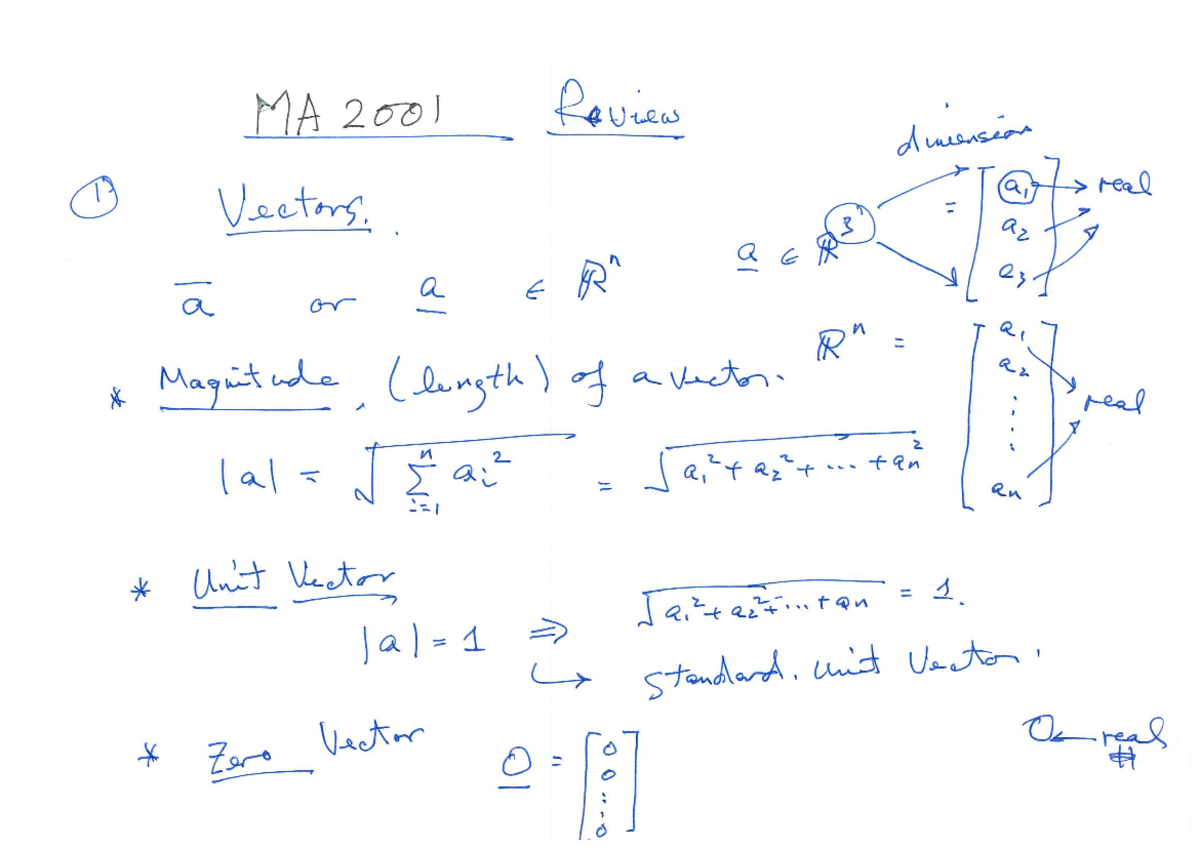 MA 2001 Review
① Vectors.
a̅ or a̲ ∈ ℝⁿ
dimension
a̲ ∈ ℝ³ = [a₁ a₂ a₃] → real
* Magnitude. (length) of a vector.
ℝⁿ = [a₁ a₂ ⋮ aₙ] real
|a| = √(∑ᵢ₌₁ⁿ aᵢ²) = √(a₁² + a₂² + ... + aₙ²)
* Unit Vector
|a| = 1 ⇒ √(a₁² + a₂² + ... + aₙ) = 1.
↪ standard. unit Vector.
* Zero Vector 0̲ = [0 0 ⋮ 0]
0 ← real #